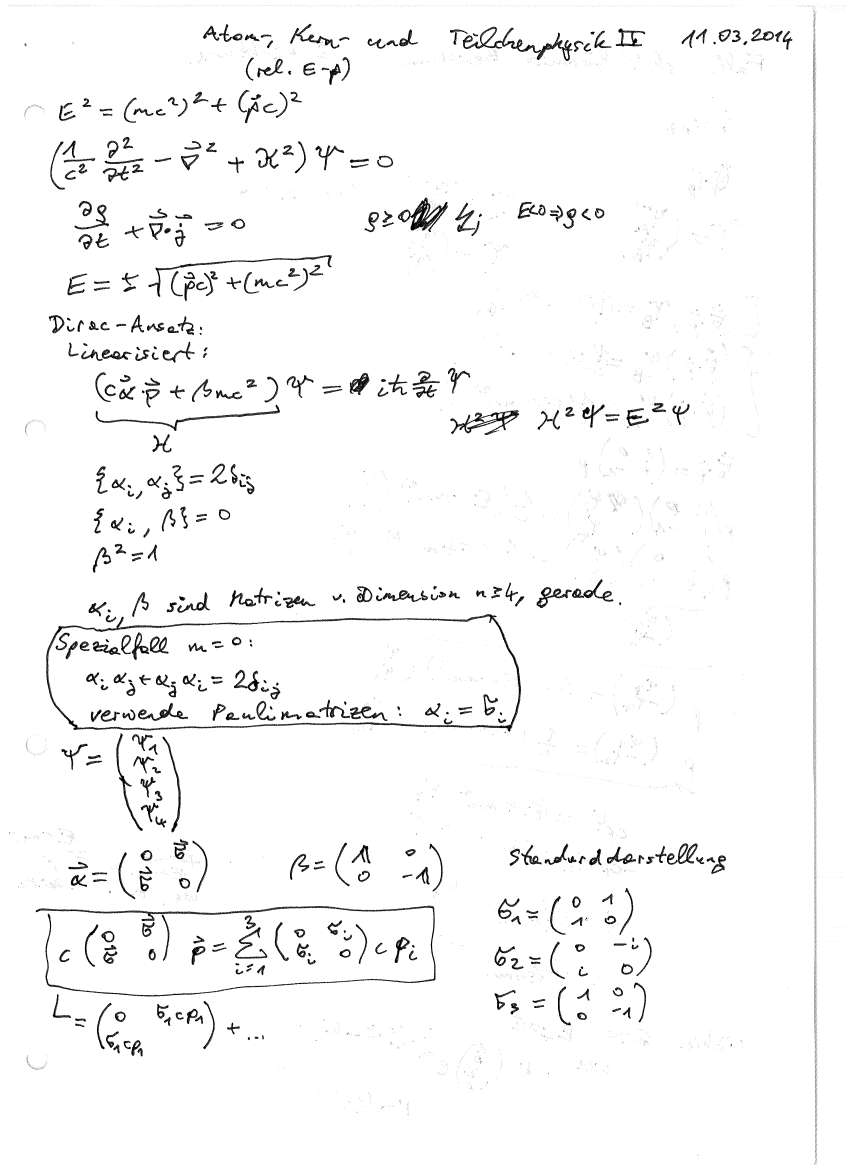 Atom-, Kern- und Teilchenphysik II 11.03.2014
(rel. E-p)
E² = (mc²)² + (p⃗c)²
(1/c² ∂²/∂t² - ∇⃗² + ϰ²) Ψ = 0
∂ρ/∂t + ∇⃗·j⃗ = 0 ρ ≥ 0 ↯; E<0 ⇒ ρ<0
E = ± √((p⃗c)² + (mc²)²)
Dirac-Ansatz:
Linearisiert:
(cα⃗·p⃗ + βmc²) Ψ = iħ ∂/∂t Ψ
ℋ ℋ²Ψ = E²Ψ
{αᵢ, αⱼ} = 2δᵢⱼ
{αᵢ, β} = 0
β² = 1
αᵢ, β sind Matrizen v. Dimension n≥4, gerade.
Spezialfall m = 0:
αᵢ αⱼ + αⱼ αᵢ = 2δᵢⱼ
verwende Paulimatrizen: αᵢ = σᵢ
Ψ = (Ψ₁ Ψ₂ Ψ₃ Ψ₄)
α⃗ = (0 σ⃗; σ⃗ 0) β = (𝟙 0; 0 -𝟙) Standarddarstellung
σ₁ = (0 1; 1 0)
c (0 σ⃗; σ⃗ 0) p⃗ = ∑ᵢ₌₁³ (0 σᵢ; σᵢ 0) c pᵢ σ₂ = (0 -i; i 0)
σ₃ = (1 0; 0 -1)
= (0 σ₁cp₁; σ₁cp₁) + ...